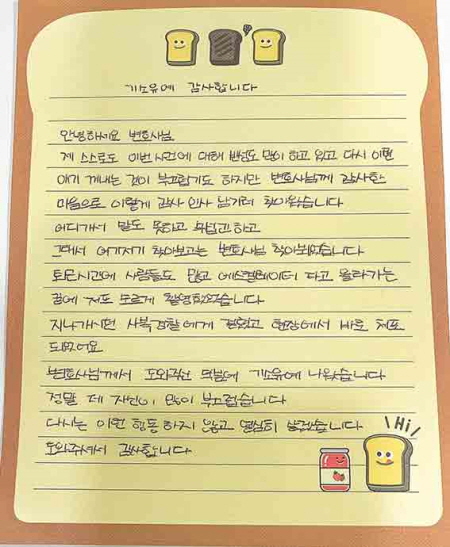 기소유예 감사합니다
안녕하세요 변호사님
제 스스로도 이번 사건에 대해 반성도 많이 하고 있고 다시 이런
얘기 꺼내는 것이 부끄럽기도 하지만 변호사님께 감사한
마음으로 이렇게 감사 인사 남기러 찾아왔습니다
어디가서 말도 못하고 무섭고하고
그래서 여기저기 찾아보고는 변호사님 찾아뵈었습니다
퇴근시간에 사람들도 많고 에스컬레이터 타고 올라가는
중에 저도 모르게 촬영하였습니다
지나가시던 사복경찰에게 걸렸고 현장에서 바로 체포
되었어요
변호사님께서 도와주신 덕분에 기소유예 나왔습니다
정말 제 자신이 많이 부끄럽습니다
다시는 이런 행동 하지 않고 열심히 살겠습니다
도와주셔서 감사합니다
Hi!